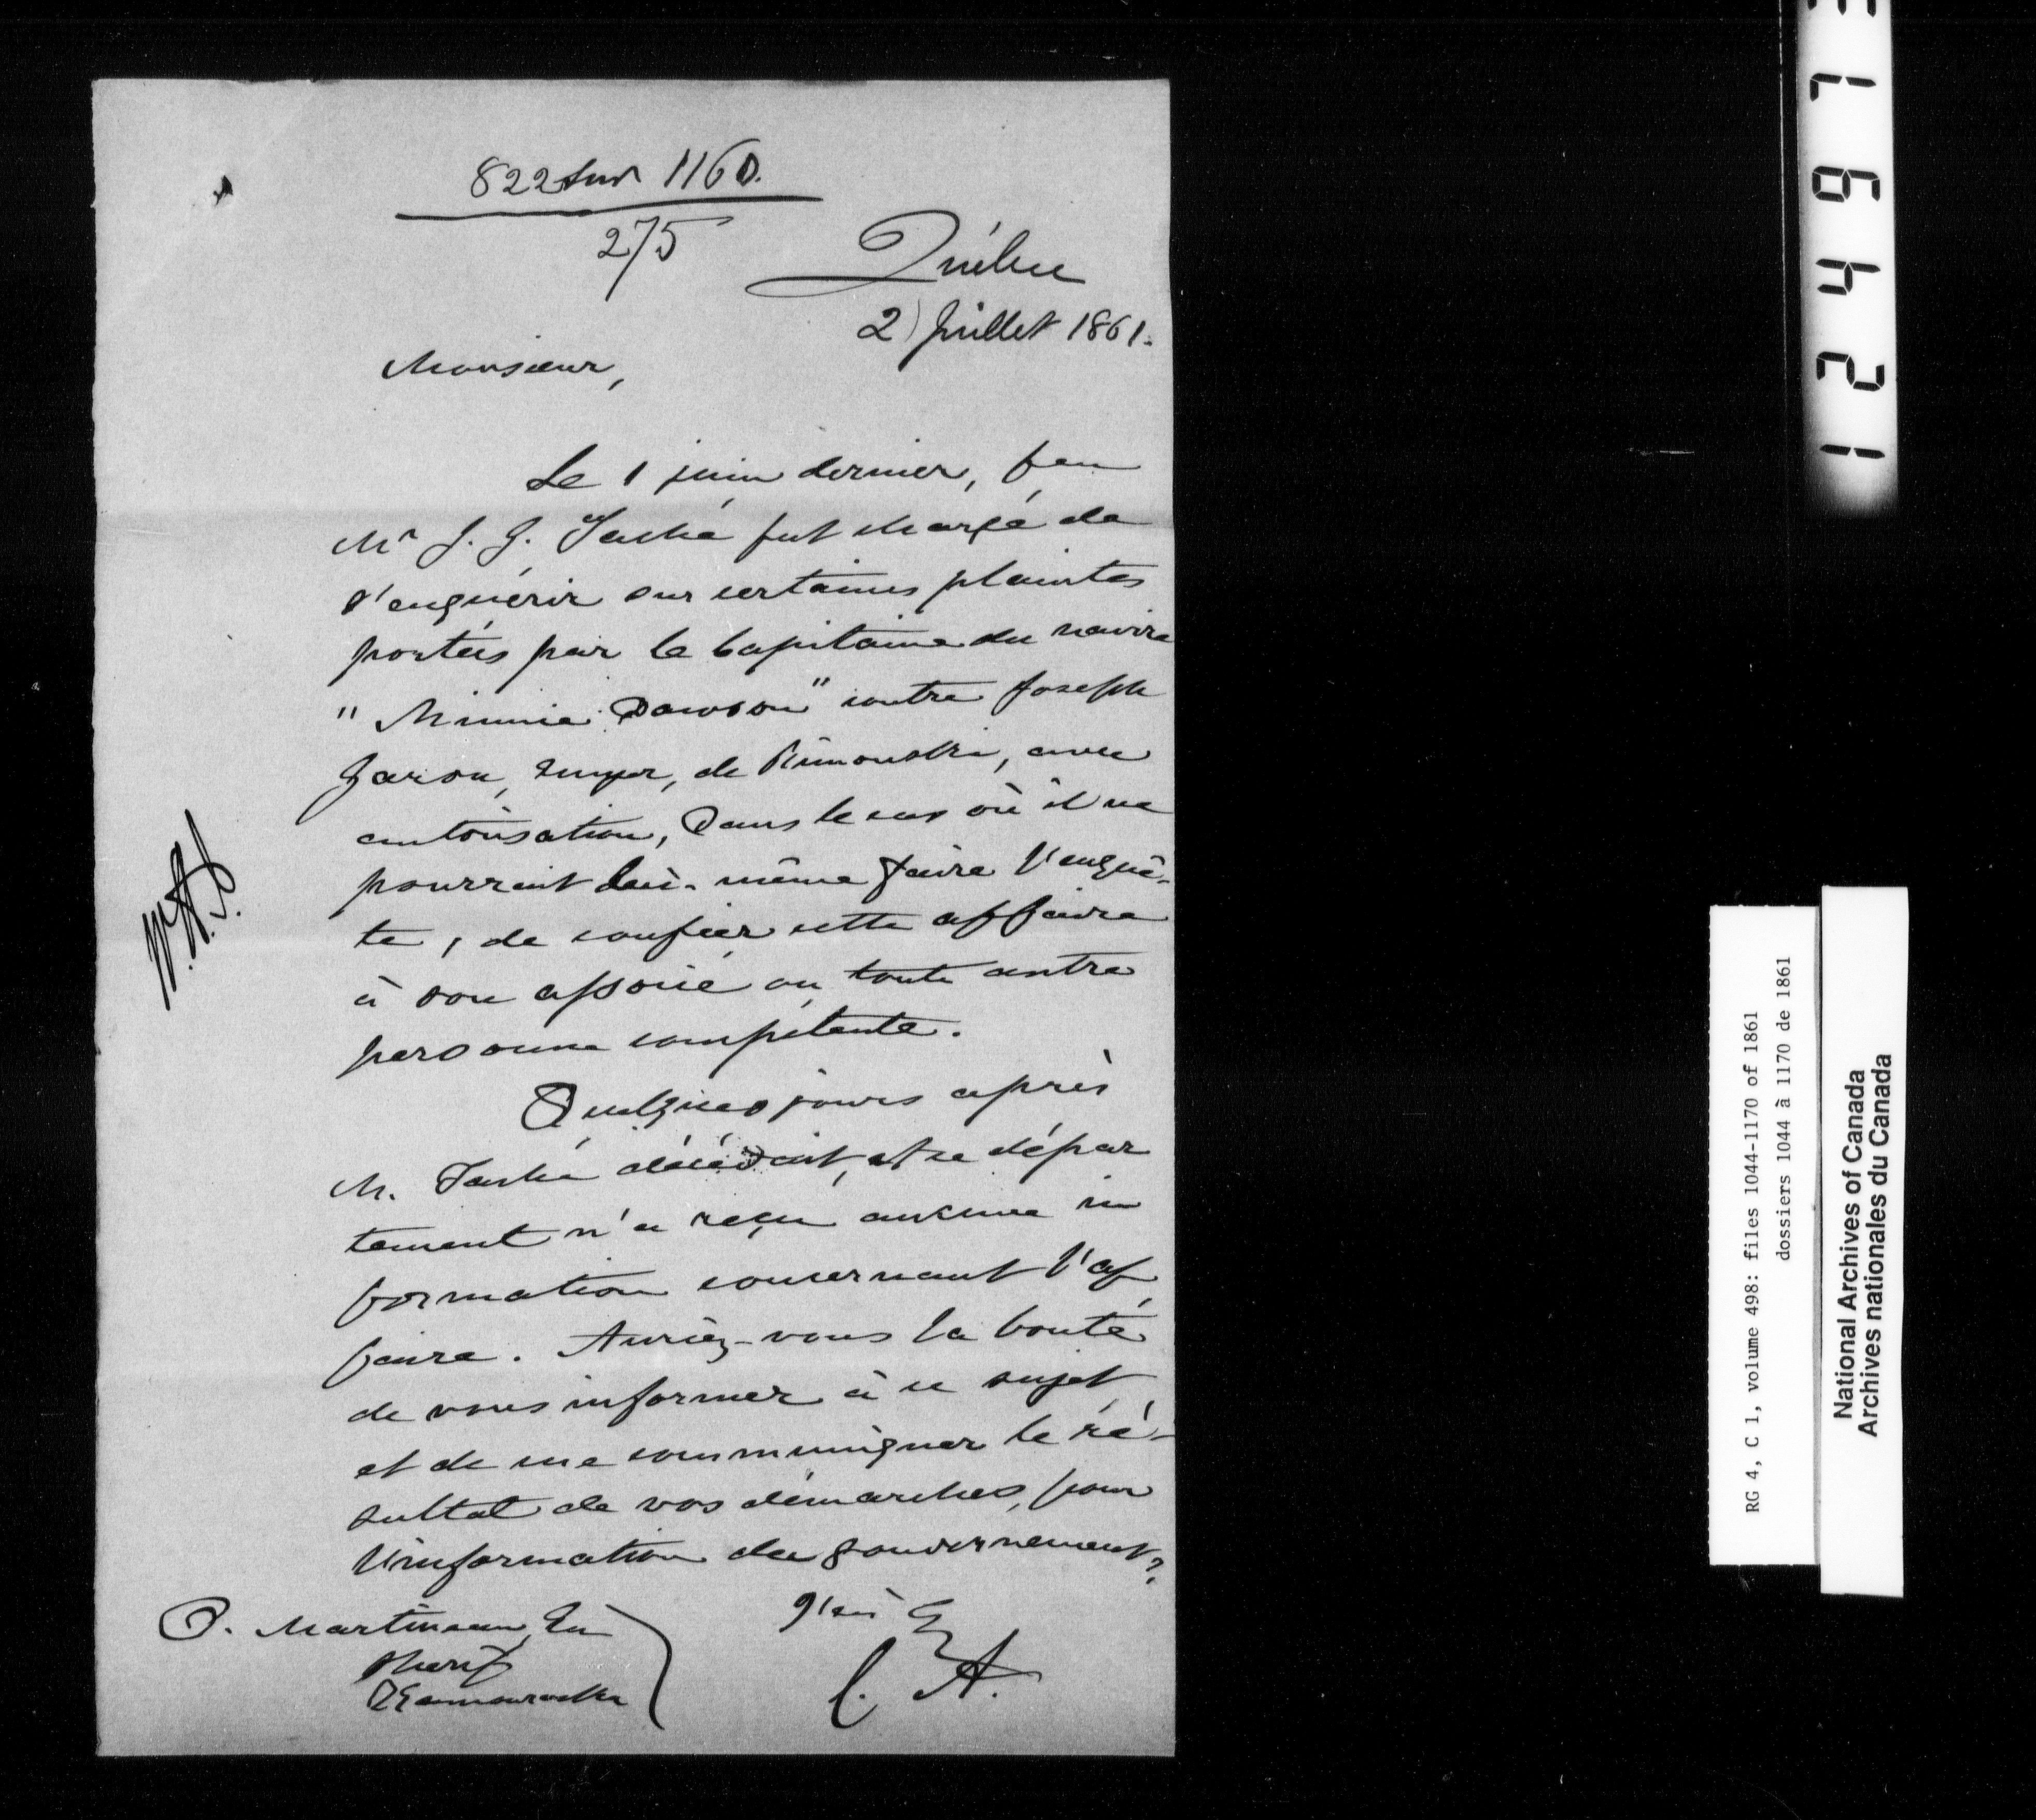 822 sur 1160.
275
Québec
2 Juillet 1861.
Monsieur,
Le 1 juin dernier, feu
Mr J. G. Taché fut chargé de
s'enquérir sur certaines plaintes
portées par le Capitaine du navire
"Minnie Dawson" contre Joseph
Garon, Ecuyer, de Rimouski, avec
autorisation, dans le cas où il ne
pourrait lui-même faire l'enquê-
te, de confier cette affaire
à son associé ou toute autre
personne compétente.
Quelques jours après
M. Taché décédait, et ce dépar
tement n'a reçu aucune in
formation concernant l'af
faire. Auriez-vous la bonté
de vous informer à ce sujet
et de me communiquer le ré-
sultat de vos démarches, pour
l'information du gouvernement?
J'ai
C. A.
P. Martineau, Eu
Sherif
Kamouraska
W.A.
RG 4, C 1, volume 498: files 1044-1170 of 1861
dossiers 1044 à 1170 de 1861
National Archives of Canada
Archives nationales du Canada